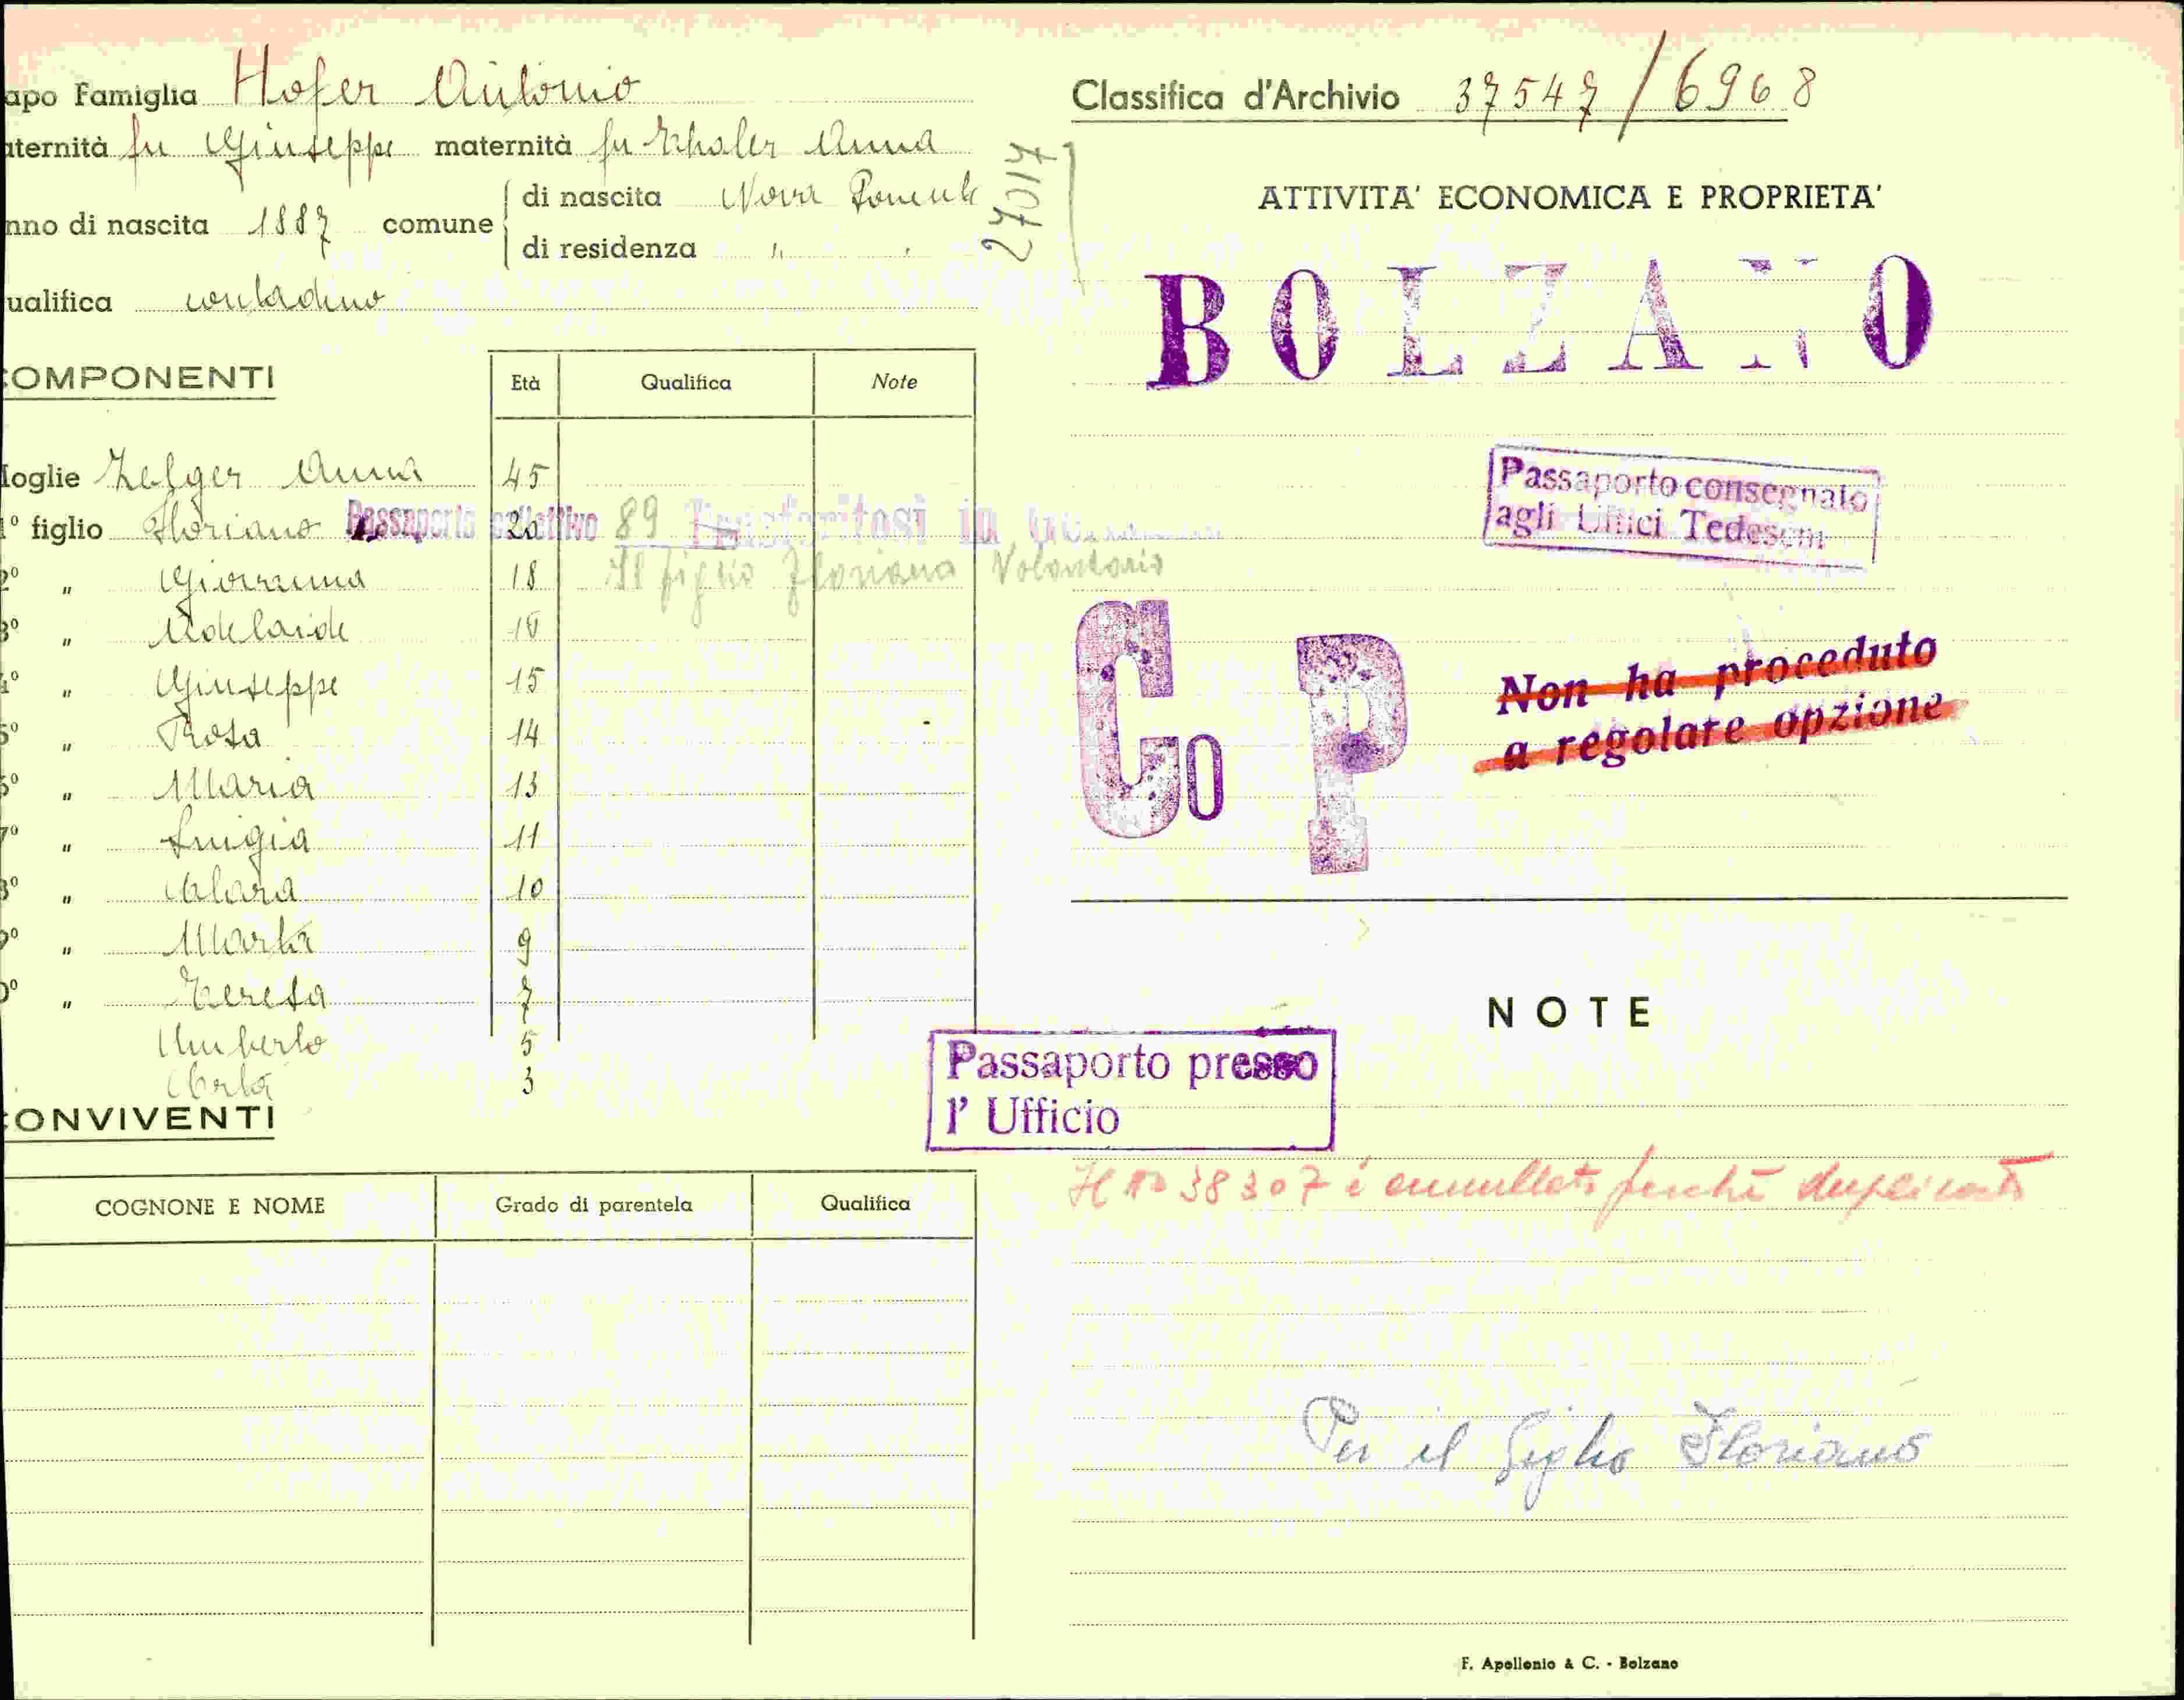 apo Famiglia Hofer Antonio
aternità fu Giuseppe maternità fu Thaler Anna
nno di nascita 1887 comune di nascita Nova Ponente
di residenza "
ualifica contadino
27017
COMPONENTI
Età Qualifica Note
Moglie Zelger Anna 45
1º figlio Floriano 20 Passaporto collettivo 89 Trasferitosi in
2º " Giovanna 18 Il figlio Floriano Volontario
3º " Adelaide 16
4º " Giuseppe 15
5º " Rosa 14
6º " Maria 13
7º " Luigia 11
8º " Clara 10
9º " Marta 9
0º " Teresa 7
Umberto 5
Berta 3
CONVIVENTI
COGNONE E NOME Grado di parentela Qualifica
Classifica d'Archivio 37547/6968
ATTIVITA' ECONOMICA E PROPRIETA'
BOLZANO
Passaporto consegnato
agli Uffici Tedeschi
Co P
Non ha proceduto
a regolare opzione
NOTE
Passaporto presso
l' Ufficio
Il no 38307 è annullato perchè duplicato
Per il figlio Floriano
F. Apollonio & C. - Bolzano